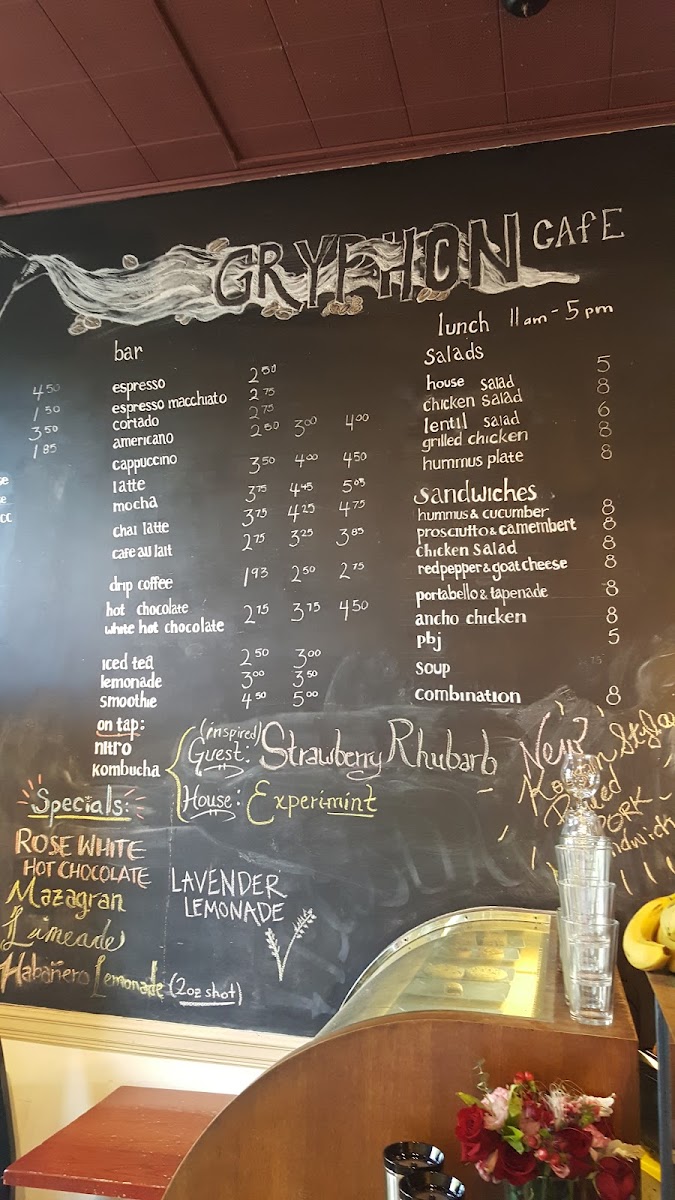 GRYPHON CAFE
4 50
1 50
3 50
1 85
bar
espresso 2 50
espresso macchiato 2 75
cortado 2 75
americano 2 50 3 00 4 00
cappuccino 3 50 4 00 4 50
latte 3 75 4 45 5 05
mocha 3 75 4 25 4 75
chai latte
cafe au lait 2 75 3 25 3 85
drip coffee 1 93 2 50 2 75
hot chocolate 2 75 3 75 4 50
white hot chocolate
iced tea 2 50 3 00
lemonade 3 00 3 50
smoothie 4 50 5 00
on tap:
nitro
kombucha
(inspired)
Guest: Strawberry Rhubarb
House: Experimint
lunch 11am - 5pm
Salads
house salad 5
chicken salad 8
lentil salad 6
grilled chicken 8
hummus plate 8
Sandwiches
hummus & cucumber 8
prosciutto & camembert 8
chicken salad 8
red pepper & goat cheese 8
portabello & tapenade 8
ancho chicken 8
pbj 5
soup
combination 8
New?
Pulled
PORK
Specials:
ROSE WHITE
HOT CHOCOLATE
Mazagran
Limeade
Habañero Lemonade (2oz shot)
LAVENDER
LEMONADE